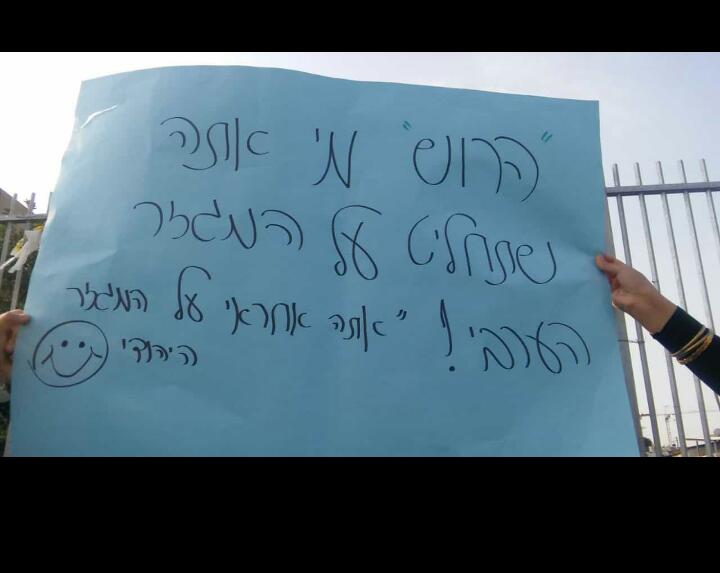 "הרוש" מי אתה
שתחליט על המגזר
הערבי! "אתה אחראי על המגזר
היהודי